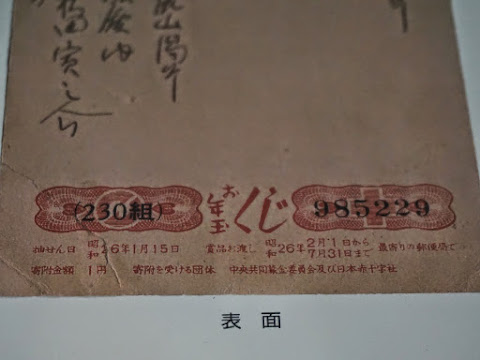 (230組)
お年玉くじ
985229
抽せん日 昭和26年1月15日
賞品お渡し 昭和26年2月1日から7月31日まで
最寄りの郵便局で
寄附金額 1円 寄附を受ける団体 中央共同募金委員会及び日本赤十字社
表面